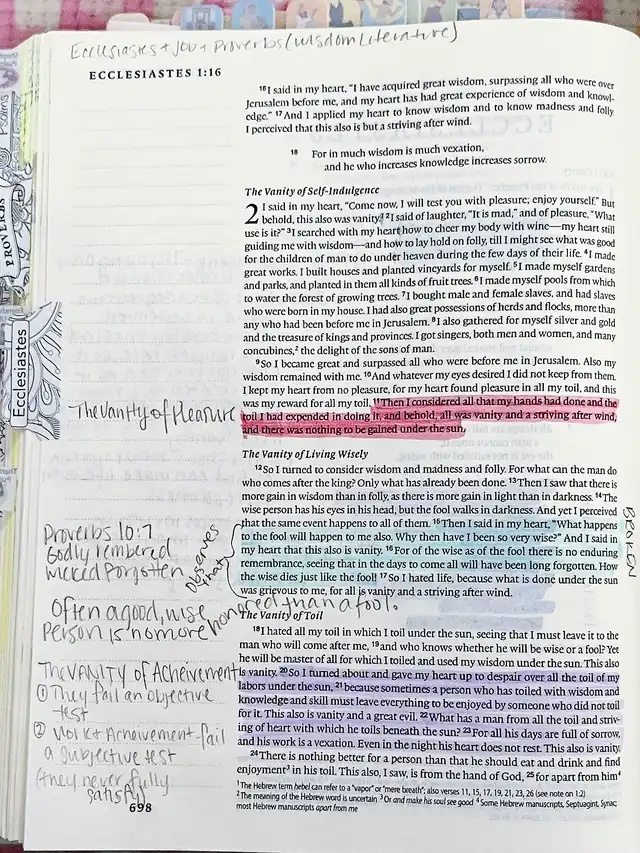 Ecclesiastes + Job + Proverbs (Wisdom Literature)
ECCLESIASTES 1:16
16 I said in my heart, "I have acquired great wisdom, surpassing all who were over
Jerusalem before me, and my heart has had great experience of wisdom and knowl-
edge." 17 And I applied my heart to know wisdom and to know madness and folly.
I perceived that this also is but a striving after wind.
18 For in much wisdom is much vexation,
and he who increases knowledge increases sorrow.
The Vanity of Self-Indulgence
2 I said in my heart, "Come now, I will test you with pleasure; enjoy yourself." But
behold, this also was vanity.1 2 I said of laughter, "It is mad," and of pleasure, "What
use is it?" 3 I searched with my heart how to cheer my body with wine—my heart still
guiding me with wisdom—and how to lay hold on folly, till I might see what was good
for the children of man to do under heaven during the few days of their life. 4 I made
great works. I built houses and planted vineyards for myself. 5 I made myself gardens
and parks, and planted in them all kinds of fruit trees. 6 I made myself pools from which
to water the forest of growing trees. 7 I bought male and female slaves, and had slaves
who were born in my house. I had also great possessions of herds and flocks, more than
any who had been before me in Jerusalem. 8 I also gathered for myself silver and gold
and the treasure of kings and provinces. I got singers, both men and women, and many
concubines,2 the delight of the sons of man.
9 So I became great and surpassed all who were before me in Jerusalem. Also my
wisdom remained with me. 10 And whatever my eyes desired I did not keep from them.
I kept my heart from no pleasure, for my heart found pleasure in all my toil, and this
was my reward for all my toil. 11 Then I considered all that my hands had done and the
toil I had expended in doing it, and behold, all was vanity and a striving after wind,
and there was nothing to be gained under the sun.
The Vanity of Living Wisely
12 So I turned to consider wisdom and madness and folly. For what can the man do
who comes after the king? Only what has already been done. 13 Then I saw that there
is more gain in wisdom than in folly, as there is more gain in light than in darkness. 14 The
wise person has his eyes in his head, but the fool walks in darkness. And yet I perceived
that the same event happens to all of them. 15 Then I said in my heart, "What happens
to the fool will happen to me also. Why then have I been so very wise?" And I said in
my heart that this also is vanity. 16 For of the wise as of the fool there is no enduring
remembrance, seeing that in the days to come all will have been long forgotten. How
the wise dies just like the fool! 17 So I hated life, because what is done under the sun
was grievous to me, for all is vanity and a striving after wind.
The Vanity of Toil
18 I hated all my toil in which I toil under the sun, seeing that I must leave it to the
man who will come after me, 19 and who knows whether he will be wise or a fool? Yet
he will be master of all for which I toiled and used my wisdom under the sun. This also
is vanity. 20 So I turned about and gave my heart up to despair over all the toil of my
labors under the sun, 21 because sometimes a person who has toiled with wisdom and
knowledge and skill must leave everything to be enjoyed by someone who did not toil
for it. This also is vanity and a great evil. 22 What has a man from all the toil and striv-
ing of heart with which he toils beneath the sun? 23 For all his days are full of sorrow,
and his work is a vexation. Even in the night his heart does not rest. This also is vanity.
24 There is nothing better for a person than that he should eat and drink and find
enjoyment3 in his toil. This also, I saw, is from the hand of God, 25 for apart from him4
1 The Hebrew term hebel can refer to a "vapor" or "mere breath"; also verses 11, 15, 17, 19, 21, 23, 26 (see note on 1:2)
2 The meaning of the Hebrew word is uncertain 3 Or and make his soul see good 4 Some Hebrew manuscripts, Septuagint, Syriac;
most Hebrew manuscripts apart from me
698
Psalms
PROVERBS
Ecclesiastes
The Vanity of Pleasure
Proverbs 10:7
Godly rembered
wicked forgotten
Observes
that
Often a good, wise
person is no more honored than a fool.
BROKEN
The VANITY of Acheivement
1 They fail an objective
test
2 Work + Acheivement fail
a subjective test
(they never fully
satisfy)